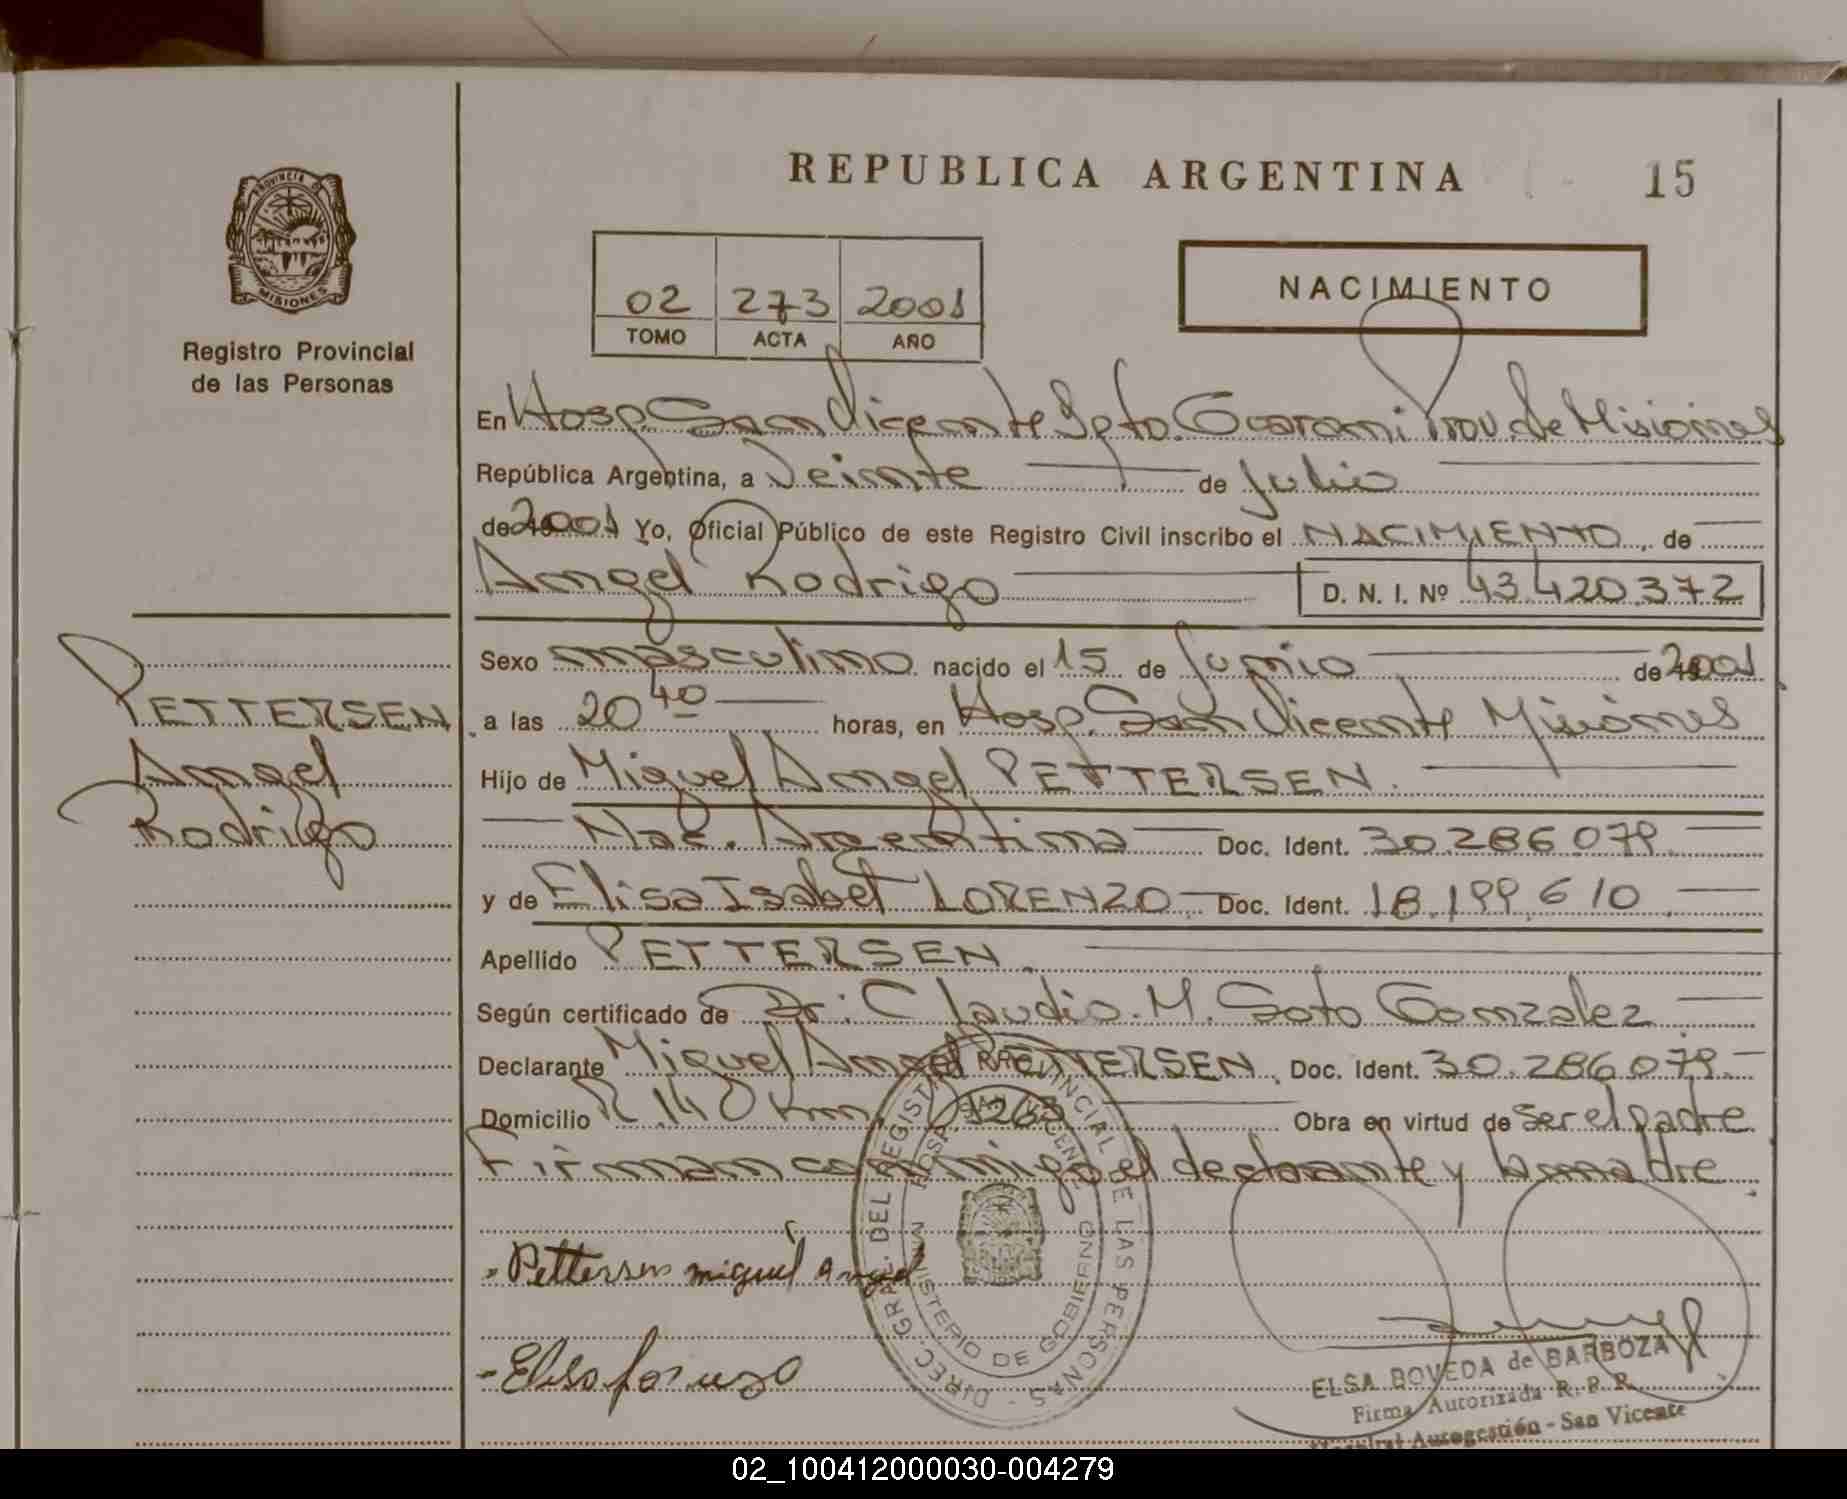 REPUBLICA ARGENTINA
15
PROVINCIA D
MISIONES
Registro Provincial
de las Personas
02 273 2001
TOMO ACTA AÑO
NACIMIENTO
En Hosp. San Vicente Dpto. Guarani Prov. de Misiones
República Argentina, a Veinte de Julio
de 2001 Yo, Oficial Público de este Registro Civil inscribo el NACIMIENTO, de
Angel Rodrigo D. N. I. Nº 43.420.372
Sexo masculino nacido el 15 de Junio de 2001
a las 20 40 horas, en Hosp. San Vicente Misiones
Hijo de Miguel Angel PETTERSEN.
Nac. Argentina Doc. Ident. 30.286.079
y de Elisa Isabel LORENZO Doc. Ident. 18.199.610
Apellido PETTERSEN.
Según certificado de Dr. Claudio. M. Soto Gonzalez
Declarante Miguel Angel PETTERSEN. Doc. Ident. 30.286.079.
Domicilio R. 14 Km 1263 Obra en virtud de ser el padre
Firman conmigo el declarante y la madre.
PETTERSEN
Angel
Rodrigo
Pettersen miguel angel
Elisa Lorenzo
DIREC. GRAL. DEL REGISTRO PROVINCIAL DE LAS PERSONAS
HOSP. SAN VICENTE
MINISTERIO DE GOBIERNO
ELSA BOVEDA de BARBOZA
Firma Autorizada R. P. P.
Hospital Autogestión - San Vicente
02_100412000030-004279